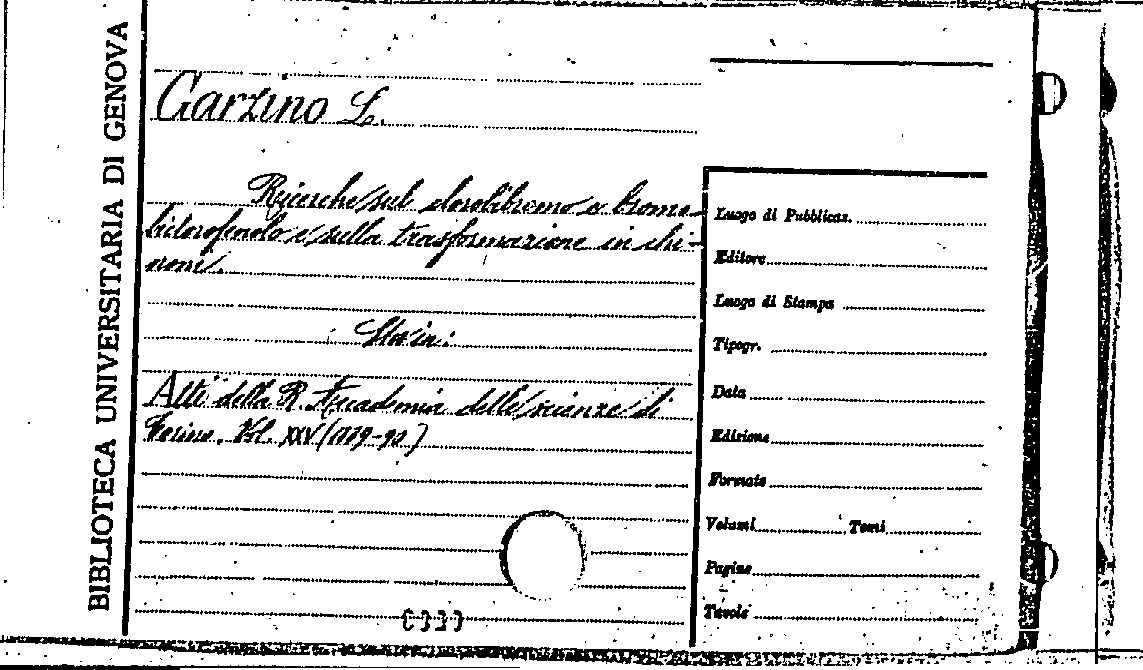 BIBLIOTECA UNIVERSITARIA DI GENOVA
Garzino L.
Ricerche sul clorobibromo e bromo-
biclorofenolo e sulla trasformazione in chi-
noni.
Sta in:
Atti della R. Accademia delle scienze di
Torino. Vol. XXV (1889-90)
Luogo di Pubblicaz.
Editore
Luogo di Stampa
Tipogr.
Data
Edizione
Formato
Volumi Tomi
Pagine
Tavole